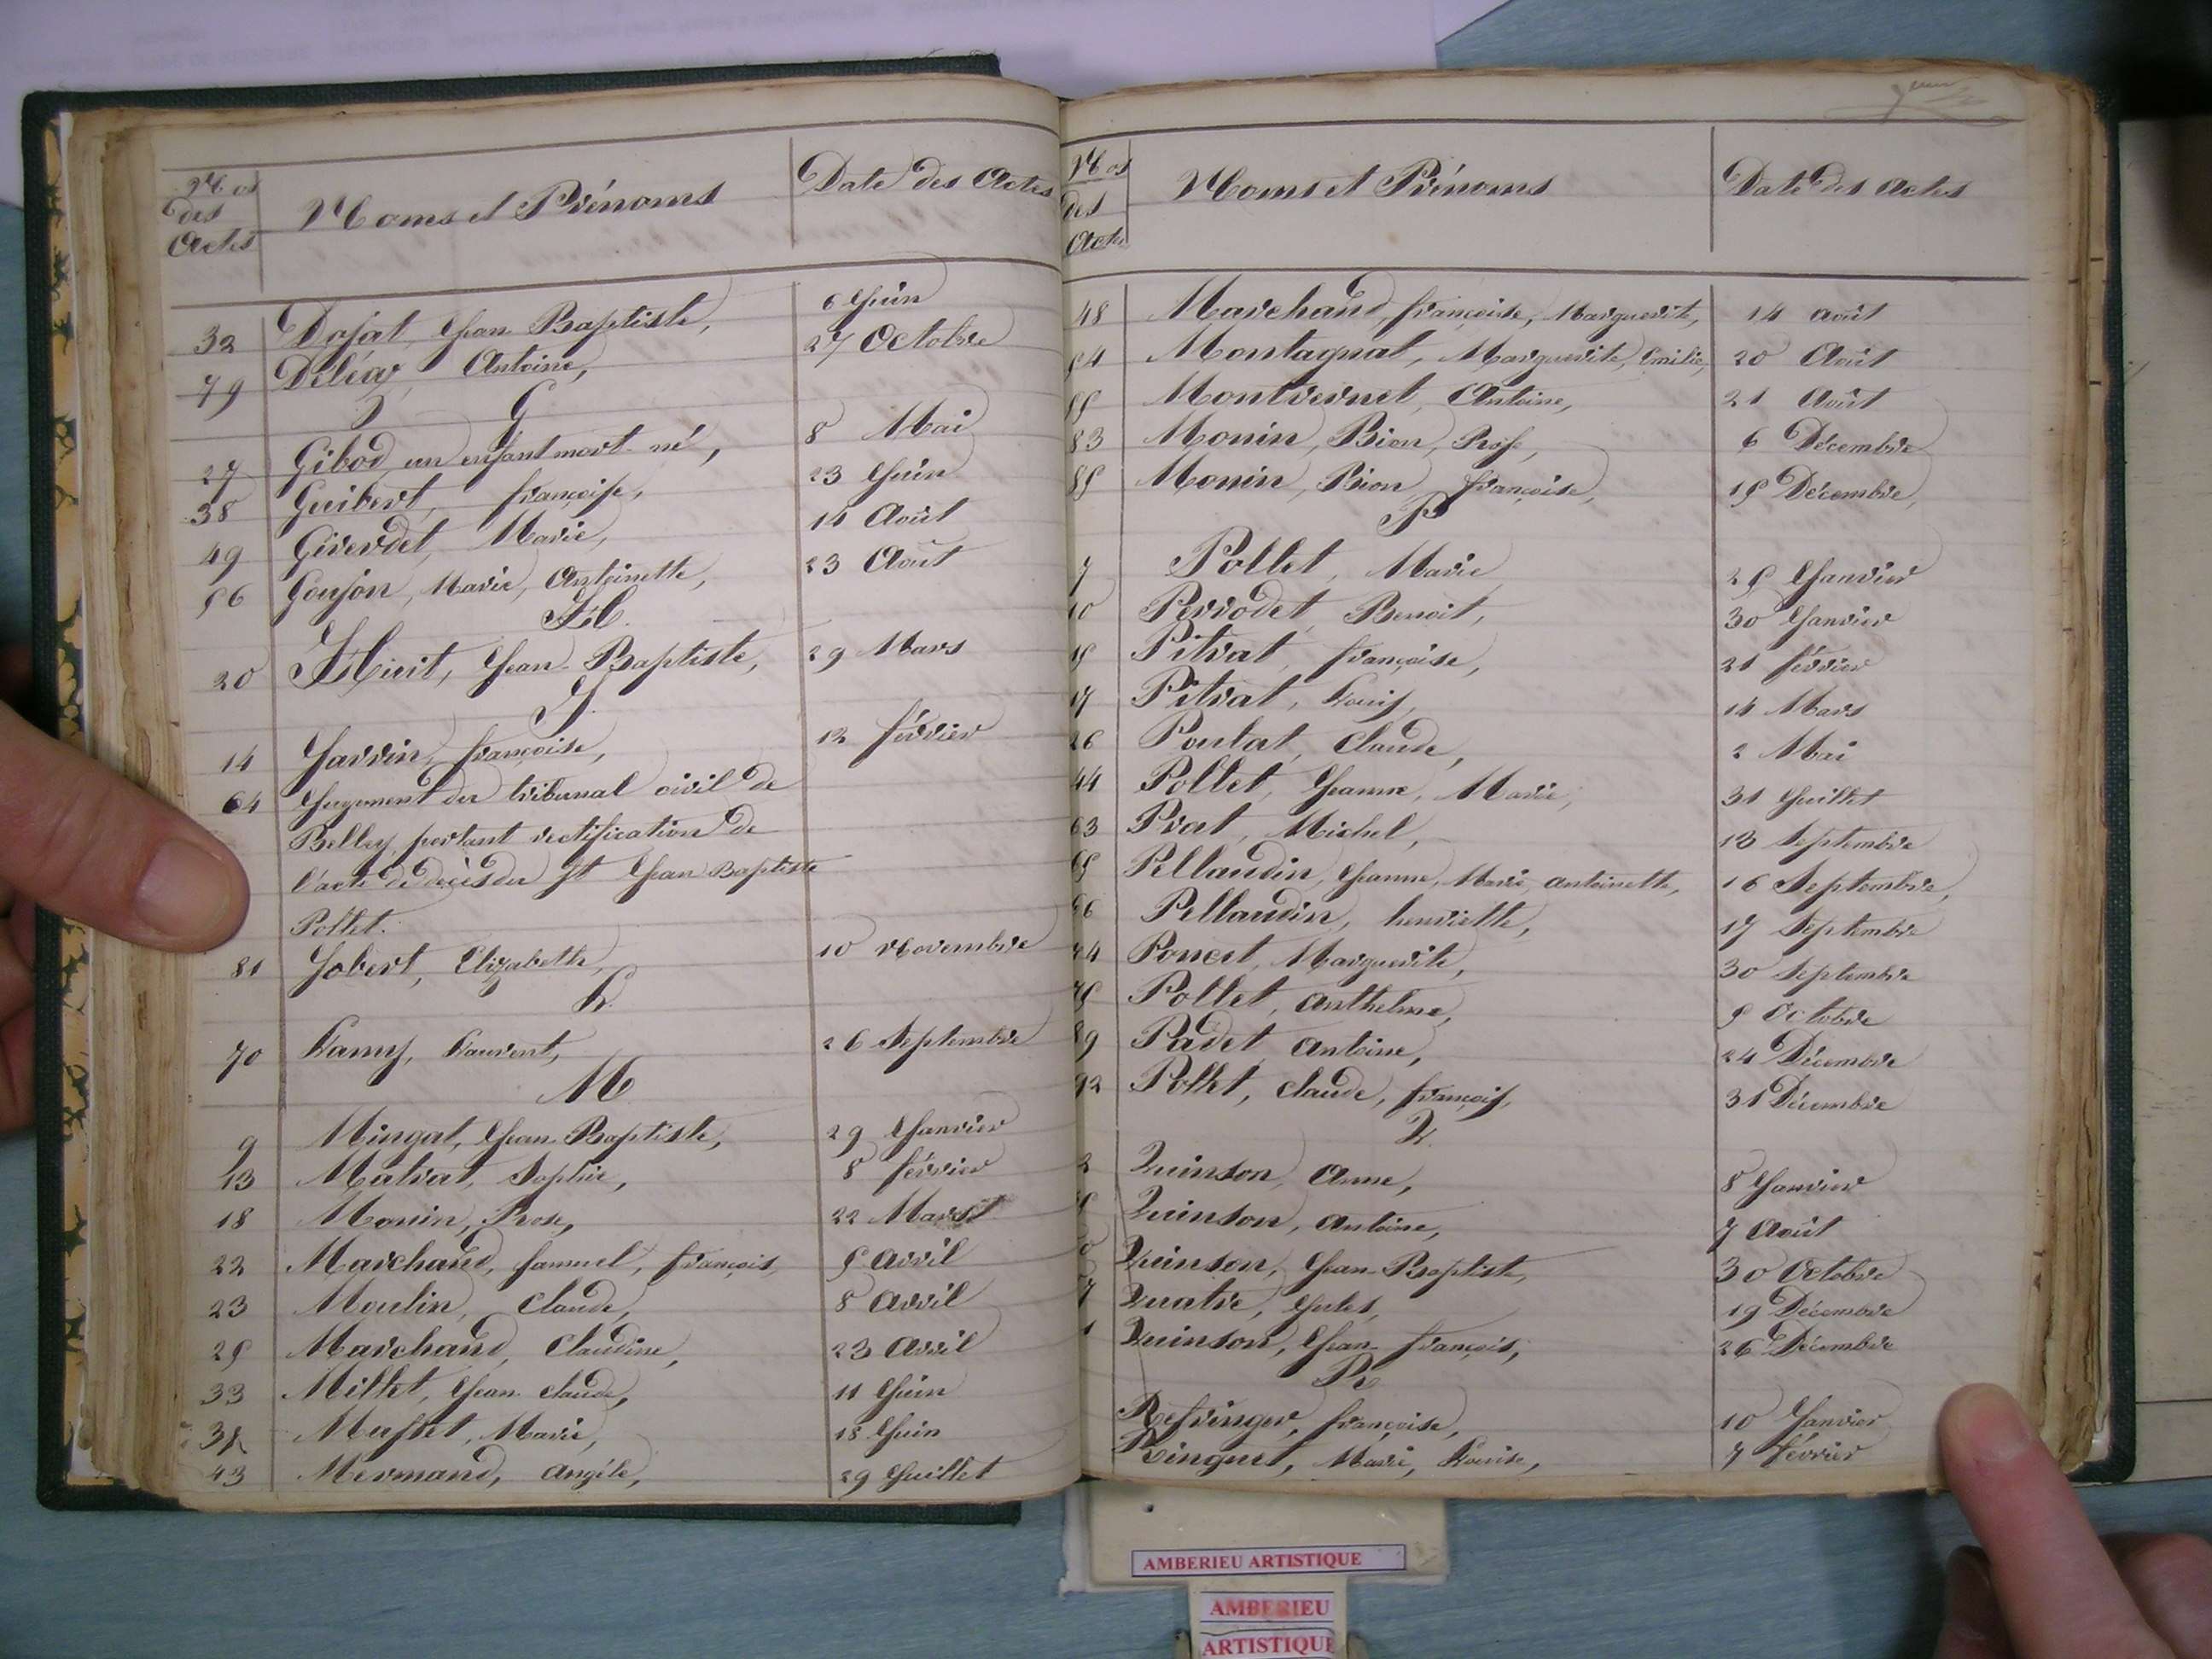 Nos
des
Actes
Noms et Prénoms
Date des Actes
32 Dojat, Jean-Baptiste, 6 Juin
79 Déléaz, Antoine, 27 Octobre
G
27 Gibod un enfant mort-né, 8 Mai
38 Guibert, françoise, 23 Juin
49 Giverdet, Marie, 14 Août
56 Goujon, Marie, Antoinette, 23 Août
H.
20 Huit, Jean-Baptiste, 29 Mars
J.
14 Jarrin, françoise, 12 février
64 Jugement du tribunal civil de
Belley portant rectification de
l'acte de décès du St Jean Baptiste
Pottet.
81 Jobert, Elizabeth, 10 Novembre
L.
70 Lamy, Laurent, 26 Septembre
M
9 Mingat, Jean-Baptiste, 29 Janvier
13 Matrat, Sophie, 8 février
18 Monin, Rose, 22 Mars
22 Marchand, Samuel, françois, 5 Avril
23 Moulin, Claude, 8 Avril
25 Marchand, Claudine, 23 Avril
33 Millet, Jean-Claude, 11 Juin
35 Mustet, Marie, 18 Juin
43 Mermand, Angèle, 29 Juillet
Nos
des
Actes
Noms et Prénoms
Date des Actes
48 Marchand, françoise, Marguerite, 14 Août
54 Montagnat, Marguerite, Emilie, 20 Août
55 Montvernet, Antoine, 21 Août
83 Monin, Bion, Rose, 6 Décembre
85 Monin, Bion, françoise, 15 Décembre,
P
7 Pottet, Marie 25 Janvier
10 Perrodet, Benoit, 30 Janvier
15 Pitrat, françoise, 21 février
17 Pitrat, Louis, 14 Mars
26 Poulat, Claude, 2 Mai
44 Pottet, Jeanne, Marie, 31 Juillet
63 Prat, Michel, 13 Septembre
65 Pellaudin, Jeanne, Marie, antoinette, 16 Septembre,
66 Pellaudin, henriette, 17 Septembre
74 Poncet, Marguerite, 30 Septembre
75 Pottet, Anthelme, 5 Octobre
89 Padet Antoine, 24 Décembre
92 Pottet, Claude, françois, 31 Décembre
Q.
2 Quinson, Anne, 8 Janvier
Quinson, Antoine, 7 Août
0 Quinson, Jean-Baptiste, 30 Octobre
7 Quatre, Jules, 19 Décembre
1 Quinson, Jean françois, 26 Décembre
R
Refringer, françoise, 10 Janvier
Ringuet, Marie, Louise, 7 février
AMBERIEU ARTISTIQUE
AMBERIEU
ARTISTIQUE